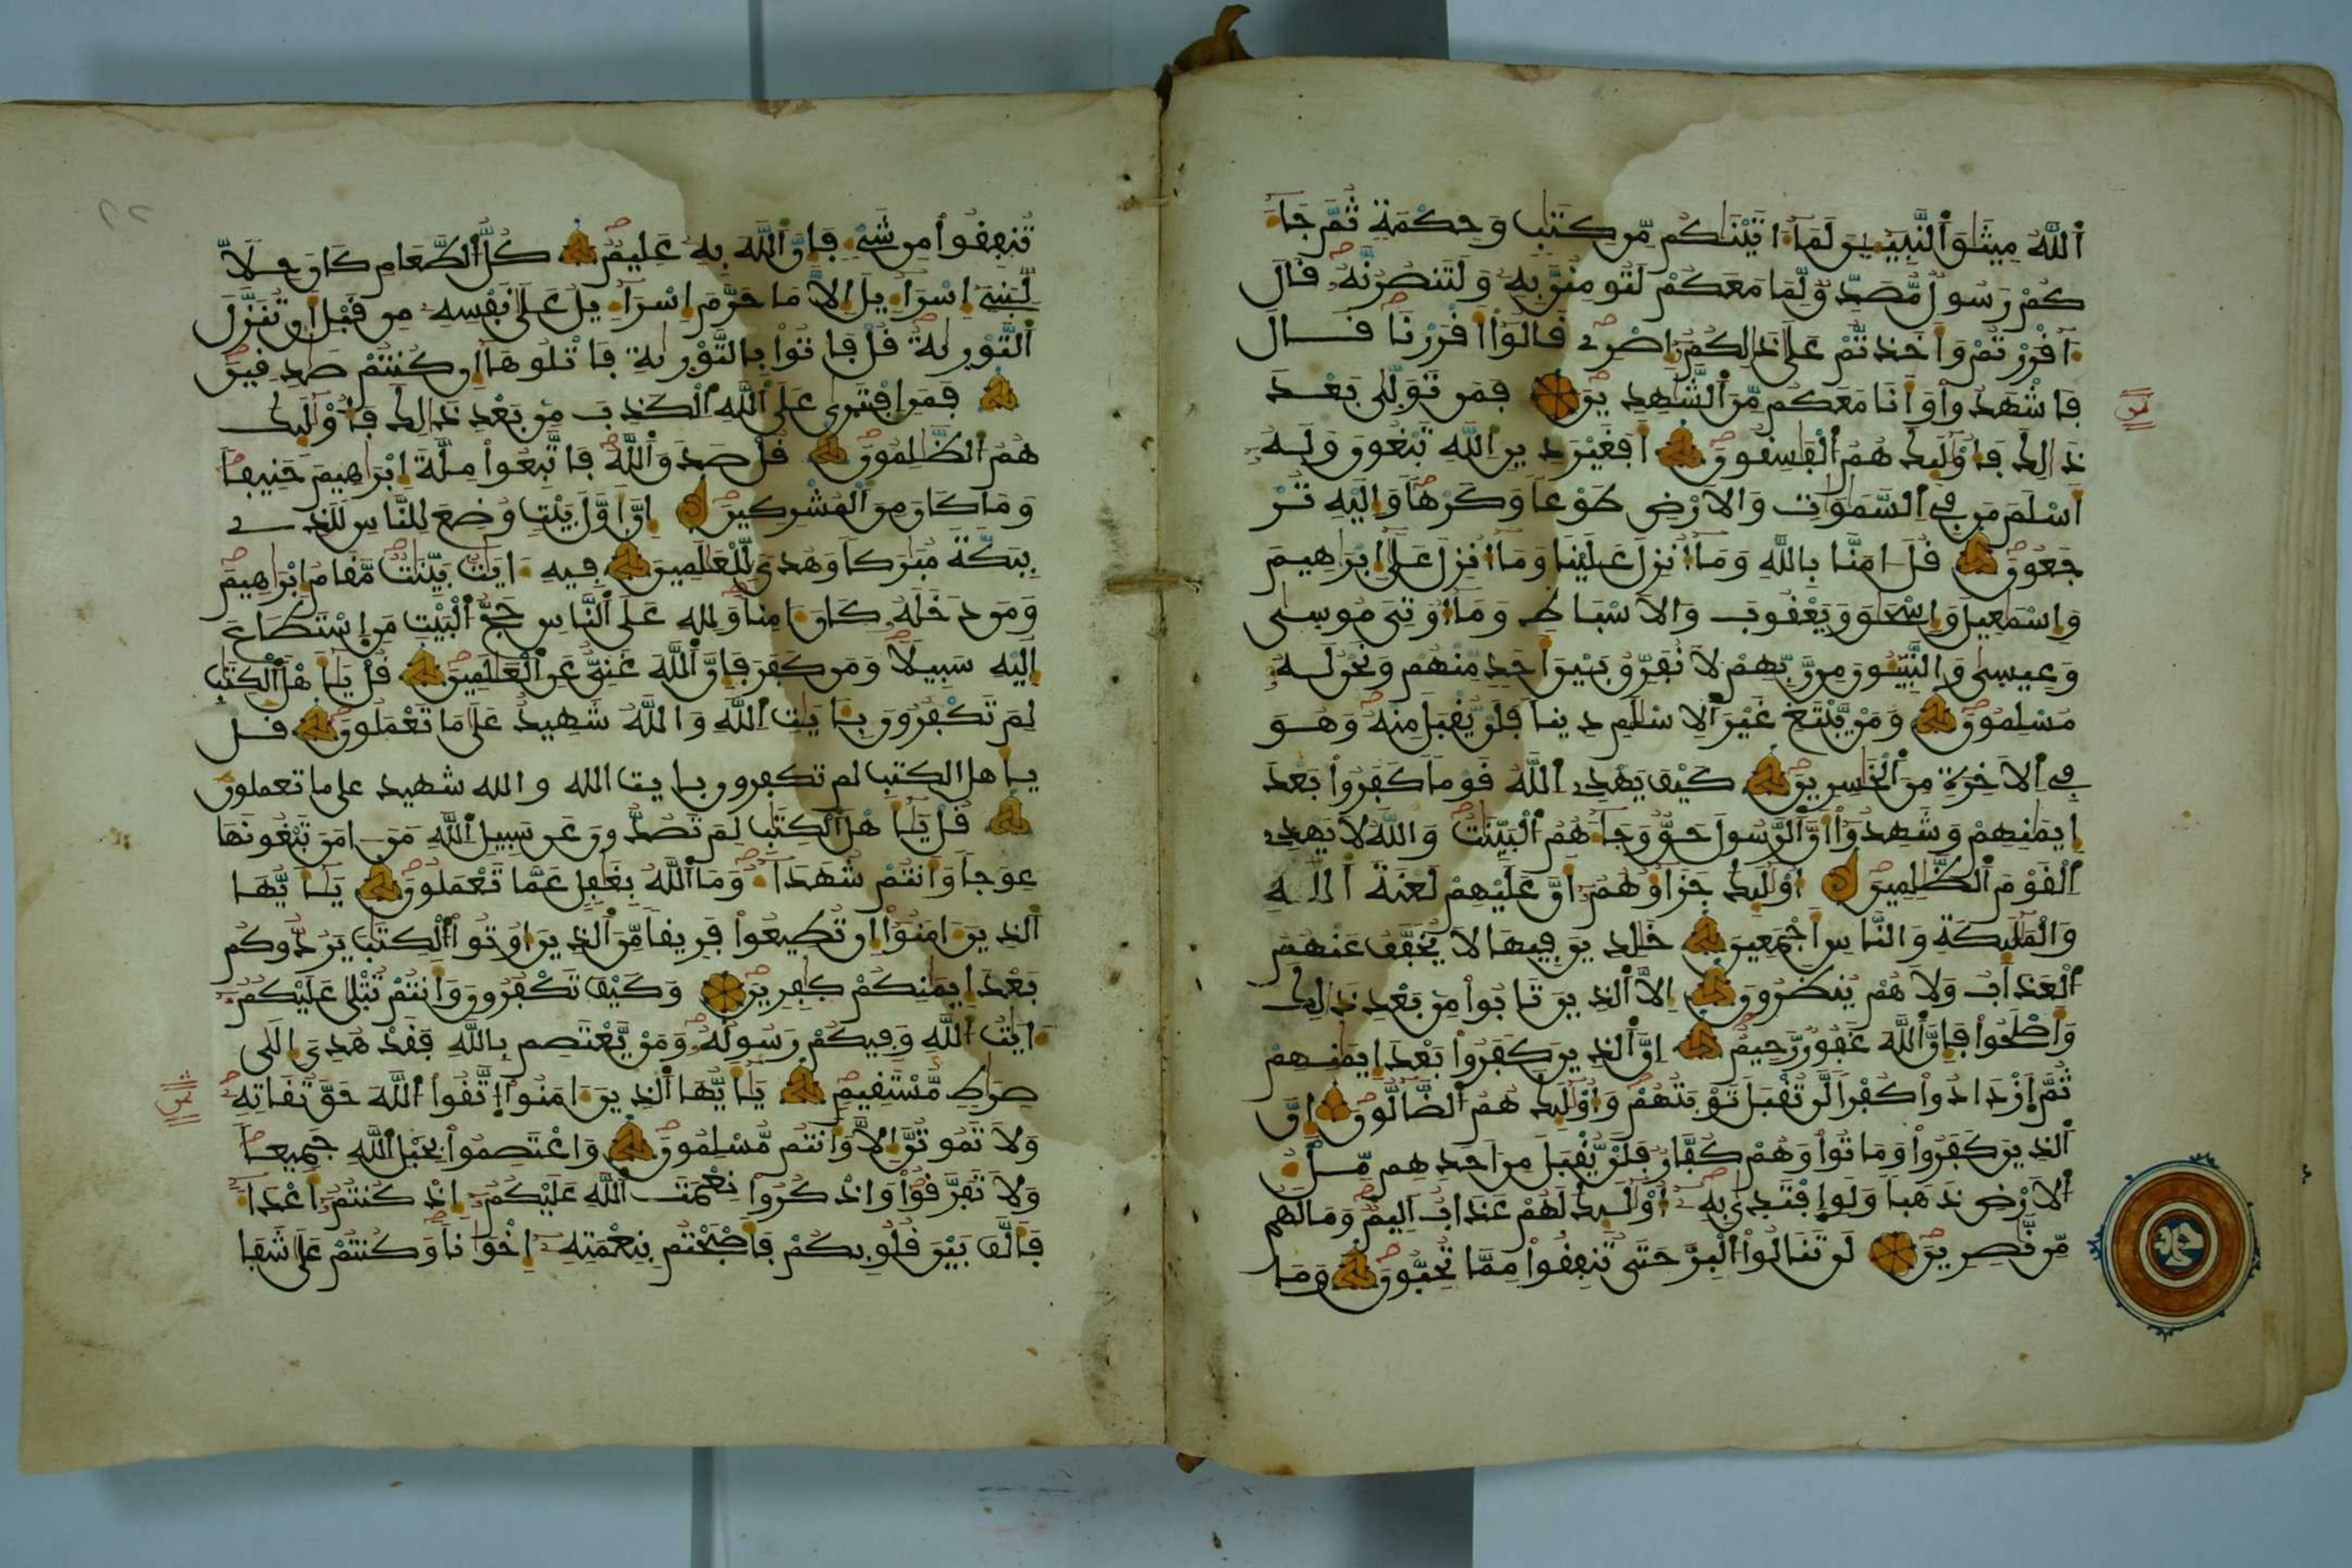 الله ميثق النبيين لما اتينكم من كتب وحكمة ثم جا
كم رسول مصدق لما معكم لتومنن به ولتنصرنه قال
اقررتم واخذتم على ذالكم إصرى قالوا أقررنا قال
فاشهدوا وأنا معكم من الشهدين فمن تولى بعد
ذالك فأولئك هم الفسقون أفغير دين الله تبغون وله
أسلم من في السموات والارض طوعا وكرها وإليه تر
جعون قل امنا بالله وما أنزل علينا وما أنزل على إبراهيم
وإسمعيل وإسحق ويعقوب والاسباط وما أوتي موسى
وعيسى والنبيون من ربهم لا نفرق بين أحد منهم ونحن له
مسلمون ومن يبتغ غير الاسلم دينا فلن يقبل منه وهو
في الاخرة من الخسرين كيف يهدي الله قوما كفروا بعد
إيمنهم وشهدوا أن الرسول حق وجاهم البينت والله لا يهدي
القوم الظلمين أولئك جزاؤهم أن عليهم لعنة الله
والملئكة والناس أجمعين خلدين فيها لا يخفف عنهم
العذاب ولا هم ينظرون إلا الذين تابوا من بعد ذالك
وأصلحوا فإن الله غفور رحيم إن الذين كفروا بعد إيمنهم
ثم ازدادوا كفرا لن تقبل توبتهم وأولئك هم الضالون إن
الذين كفروا وماتوا وهم كفار فلن يقبل من أحدهم مل
الارض ذهبا ولو افتدى به أولئك لهم عذاب أليم وما لهم
من نصرين لن تنالوا البر حتى تنفقوا مما تحبون وما
ثمن
تنفقوا من شي فإن الله به عليم كل الطعام كان حلا
لبني إسرايل إلا ما حرم إسرايل على نفسه من قبل أن تنزل
التورية قل فاتوا بالتورية فاتلوها إن كنتم صدقين
فمن افترى على الله الكذب من بعد ذالك فأولئك
هم الظلمون قل صدق الله فاتبعوا ملة إبراهيم حنيفا
وما كان من المشركين إن أول بيت وضع للناس للذي
ببكة مبركا وهدى للعلمين فيه ايت بينت مقام إبراهيم
ومن دخله كان امنا ولله على الناس حج البيت من استطاع
إليه سبيلا ومن كفر فإن الله غني عن العلمين قل يأهل الكتب
لم تكفرون بايت الله والله شهيد على ما تعملون قل
يأهل الكتب لم تكفرون بايت الله والله شهيد على ما تعملون
قل يأهل الكتب لم تصدون عن سبيل الله من امن تبغونها
عوجا وأنتم شهدا وما الله بغفل عما تعملون يأيها
الذين امنوا إن تطيعوا فريقا من الذين أوتوا الكتب يردوكم
بعد إيمنكم كفرين وكيف تكفرون وأنتم تتلى عليكم
ايت الله وفيكم رسوله ومن يعتصم بالله فقد هدي إلى
صرط مستقيم يأيها الذين امنوا اتقوا الله حق تقاته
ولا تموتن إلا وأنتم مسلمون واعتصموا بحبل الله جميعا
ولا تفرقوا واذكروا نعمت الله عليكم إذ كنتم أعدا
فألف بين قلوبكم فأصبحتم بنعمته إخوانا وكنتم على شفا
ثمن